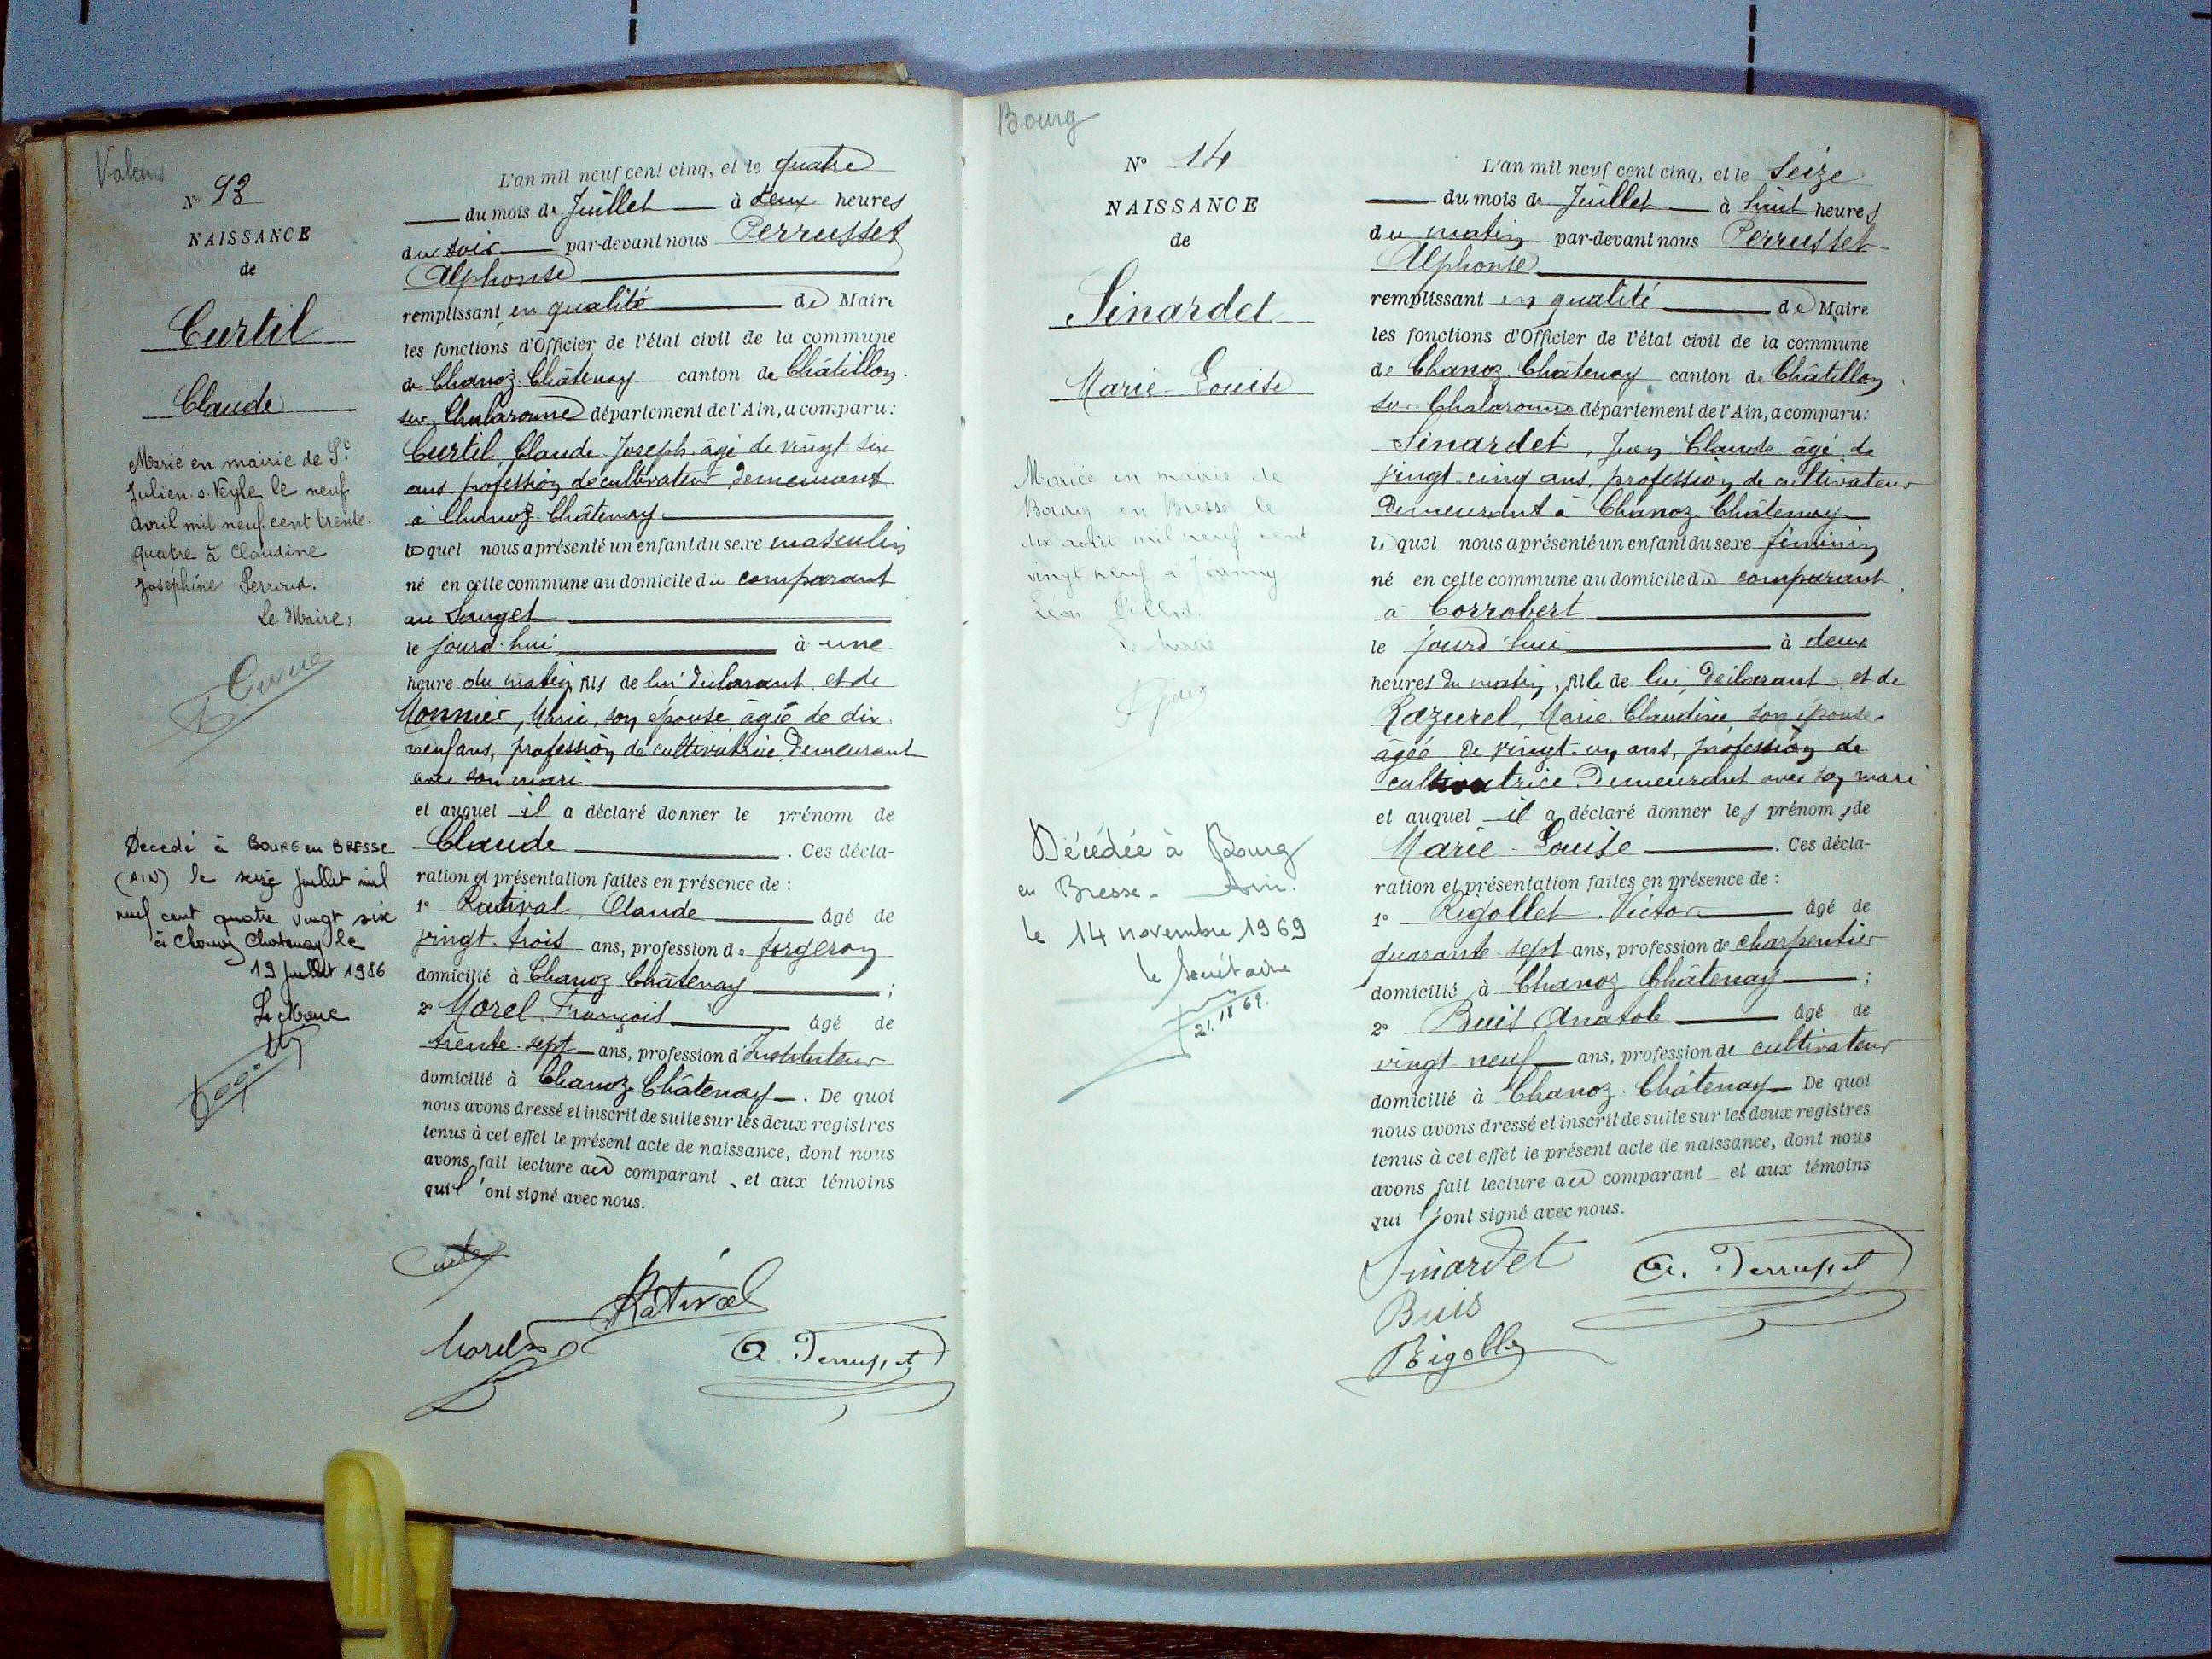 Valens
N° 93
NAISSANCE
de
Curtil
Claude
Marié en mairie de St
Julien-s-Veyle le neuf
avril mil neuf cent trente-
quatre à Claudine
Joséphine Perroud.
Le Maire,
Décédé à BOURG en BRESSE
(AIN) le seize juillet mil
neuf cent quatre vingt six
à Chanoz Chatenay le
19 juillet 1986
Le Maire
L'an mil neuf cent cinq, et le quatre
du mois de Juillet à deux heures
du soir par-devant nous Perrusset
Alphonse
remplissant en qualité de Maire
les fonctions d'Officier de l'état civil de la commune
de Chanoz-Châtenay canton de Châtillon-
sur-Chalaronne département de l'Ain, a comparu :
Curtil Claude Joseph âgé de vingt-six
ans profession de cultivateur demeurant
à Chanoz-Châtenay
lequel nous a présenté un enfant du sexe masculin
né en cette commune au domicile du comparant
au
le jourd'hui à une
heure du matin, fils de lui déclarant et de
Monnier, Marie, son épouse âgée de dix-
neuf ans, profession de cultivatrice, demeurant
avec son mari
et auquel il a déclaré donner le prénom de
Claude . Ces décla-
ration et présentation faites en présence de :
1° Ratival, Claude âgé de
vingt-trois ans, profession de forgeron
domicilié à Chanoz-Châtenay ;
2° Morel François âgé de
trente-sept ans, profession d'Instituteur
domicilié à Chanoz-Châtenay . De quoi
nous avons dressé et inscrit de suite sur les deux registres
tenus à cet effet le présent acte de naissance, dont nous
avons fait lecture au comparant et aux témoins
qui l'ont signé avec nous.
Curtil
Ratival
Morel
A. Perrusset
Bourg
N° 14
NAISSANCE
de
Sinardet
Marie-Louise
Mariée en mairie de
Bourg en Bresse le
dix août mil neuf cent
vingt neuf à Joanny
Léon
Le Maire
Décédée à Bourg
en Bresse - Ain.
le 14 novembre 1969
le Secrétaire
21.11.69.
L'an mil neuf cent cinq, et le seize
du mois de Juillet à huit heures
du matin par-devant nous Perrusset
Alphonse
remplissant en qualité de Maire
les fonctions d'Officier de l'état civil de la commune
de Chanoz-Châtenay canton de Châtillon
sur-Chalaronne département de l'Ain, a comparu :
Sinardet, Jean Claude âgé de
vingt-cinq ans, profession de cultivateur
demeurant à Chanoz-Châtenay
lequel nous a présenté un enfant du sexe féminin
né en cette commune au domicile du comparant
à Corrobert
le jourd'hui à deux
heures du matin, fille de lui déclarant et de
Razurel, Marie Claudine son épouse
âgée de vingt-un ans, profession de
cultivatrice demeurant avec son mari
et auquel il a déclaré donner les prénoms de
Marie-Louise . Ces décla-
ration et présentation faites en présence de :
1° Rigollet Victor âgé de
quarante-sept ans, profession de charpentier
domicilié à Chanoz-Châtenay ;
2° Buis Anatole âgé de
vingt neuf ans, profession de cultivateur
domicilié à Chanoz-Châtenay De quoi
nous avons dressé et inscrit de suite sur les deux registres
tenus à cet effet le présent acte de naissance, dont nous
avons fait lecture au comparant et aux témoins
qui l'ont signé avec nous.
Sinardet
A. Perrusset
Buis
Rigollet